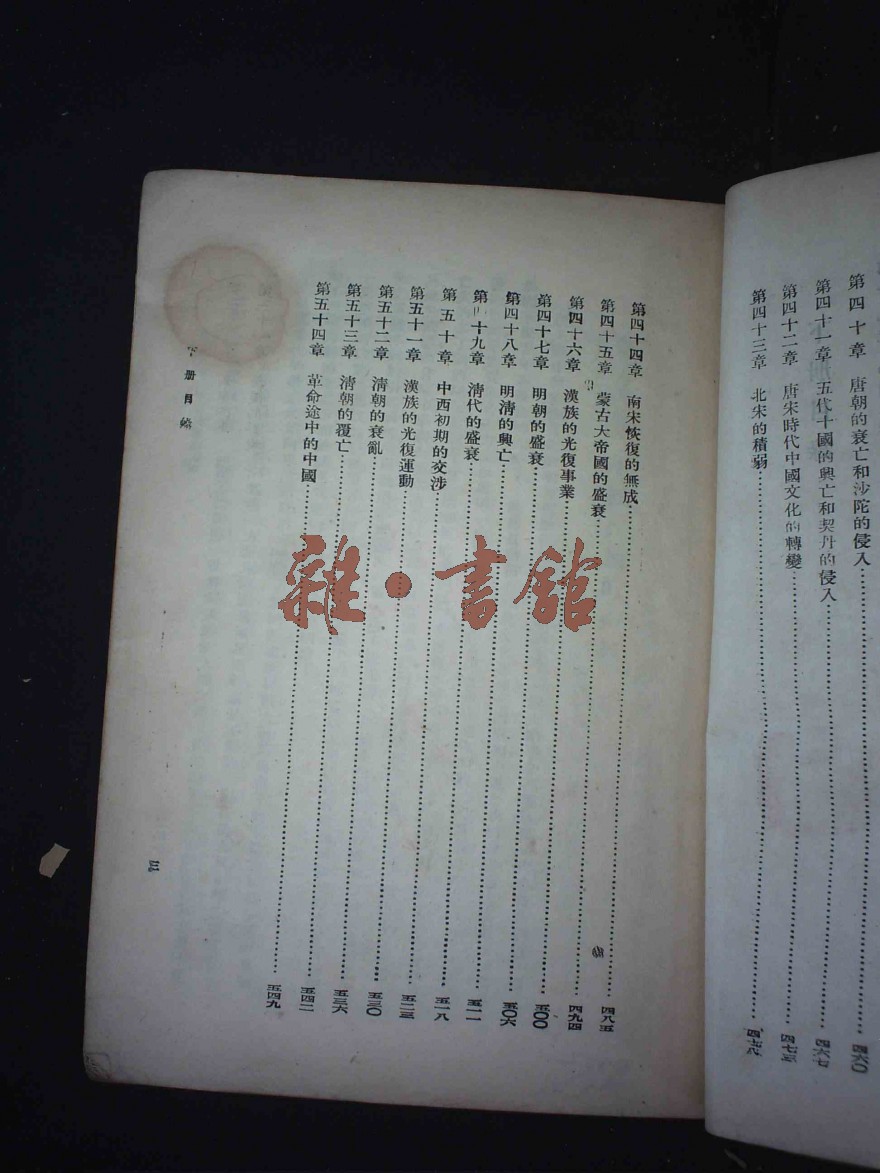 第四十章 唐朝的衰亡和沙陀的侵入
四六〇
第四十一章 五代十國的興亡和契丹的侵入……四六七
第四十二章 唐宋時代中國文化的轉變……四七三
第四十三章 北宋的積弱……四七八
第四十四章 南宋恢復的無成……四八五
第四十五章 蒙古大帝國的盛衰……四九四
第四十六章 漢族的光復事業……五〇〇
第四十七章 明朝的盛衰……五〇六
第四十八章 明清的興亡……五一一
第四十九章 清代的盛衰……五一八
第五十章 中西初期的交涉……五二三
第五十一章 漢族的光復運動……五三〇
第五十二章 清朝的衰亂……五三六
第五十三章 清朝的覆亡……五四二
第五十四章 革命途中的中國……五四九
下册目錄
三
雜·書館